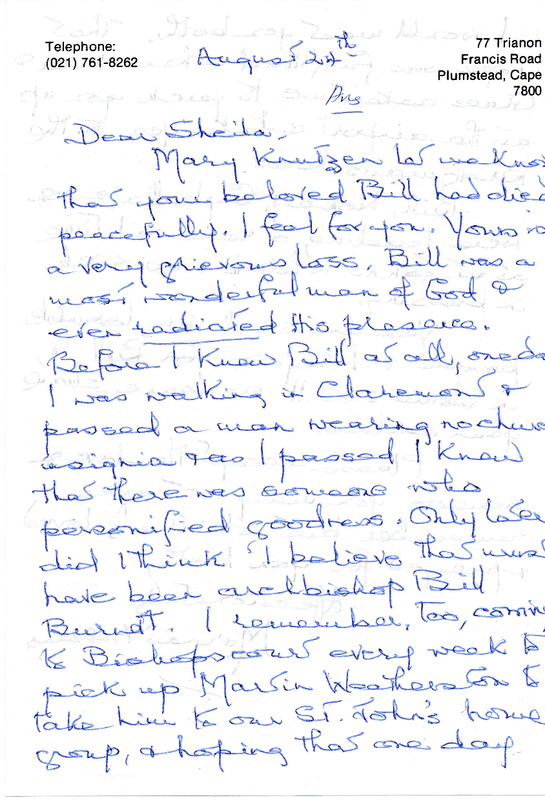 Telephone:
(021) 761-8262
77 Trianon
Francis Road
Plumstead, Cape
7800
August 24th
Dear Sheila,
Mary Knutzen let me kno
that your beloved Bill had died
peacefully. I feel for you. Yours is
a very grievous loss. Bill was a
most wonderful man of God &
even radiated His presence.
Before I knew Bill at all, one da
I was walking in Claremont &
passed a man wearing no chur
insignia & as I passed I knew
that there was someone who
personified goodness. Only later
did I think 'I believe that must
have been archbishop Bill
Burnett. I remember, too, comin
to Bishopscourt every week to
pick up Martin Weatherston to
take him to our St. John's home
group, & hoping that one day